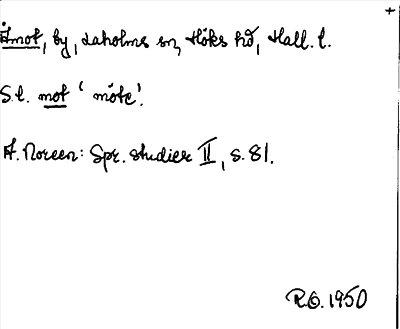 +
Åmot, by, Laholms sn, Höks hd, Hall. l.
S.l. mot 'möte'.
A. Noreen: Spr. studier II, s. 81.
R.Ö. 1950